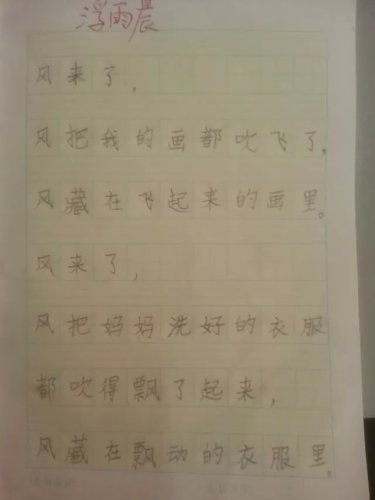 浮雨晨
风来了，
风把我的画都吹飞了，
风藏在飞起来的画里。
风来了，
风把妈妈洗好的衣服
都吹得飘了起来，
风藏在飘动的衣服里。